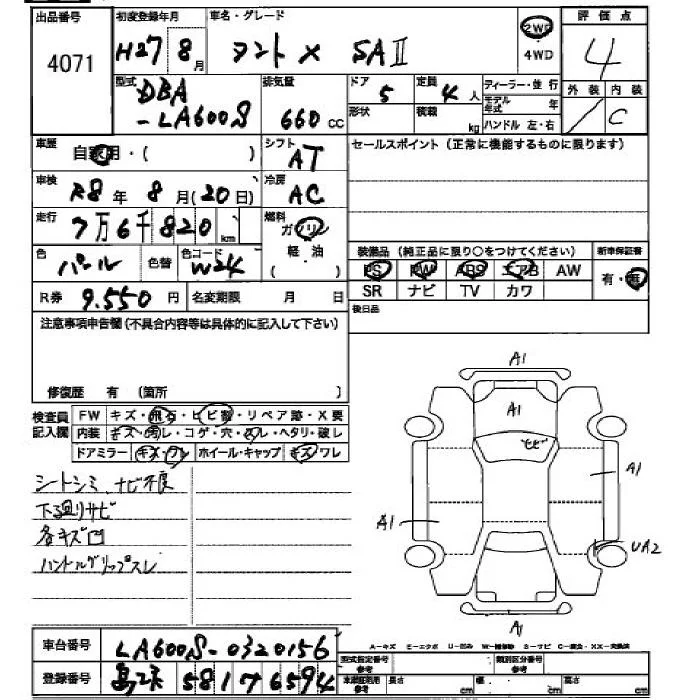 出品番号 初度登録年月 車名・グレード 2WD 評価点
4071 H27 8月 タント X SAⅡ ・4WD 4
型式 DBA-LA600S 排気量 660cc ドア 5 定員 4人 ディーラー・並行 外装 内装
形状 積載 kg モデル年式 年 ハンドル 左・右 C
車歴 自家用・( ) シフト AT セールスポイント(正常に機能するものに限ります)
車検 R8年 8月(20日) 冷房 AC
走行 7万6千820km 燃料 ガソリン
軽・油
( )
色 パール 色替 色コード W24 装備品(純正品に限り○をつけてください) 新車保証書
PS PW ABS エアB AW 有・無
R券 9.550円 名変期限 月 日 SR ナビ TV カワ
注意事項申告欄(不具合内容等は具体的に記入して下さい) 後日品
修復歴 有(箇所 )
検査員 FW キズ・飛石・ヒビ割・リペア跡・X要
記入欄 内装 キズ・汚レ・コゲ・穴・スレ・ヘタリ・破レ
ドアミラー キズ・ワレ ホイール・キャップ キズ・ワレ
シートシミ ナビ不良
下廻りサビ
各キズ凹
ハンドルグリップスレ
A1
A1
ヒビ
A1
A1
UA2
A1
車台番号 LA600S-0320156
A-キズ E-エクボ U-凹み W-補修跡 S-サビ C-腐食 XX-交換済
登録番号 581 え 6594
型式指定番号 参考 類別区分番号 参考
車庫証明用 参考 長さ cm 幅 cm 高さ cm